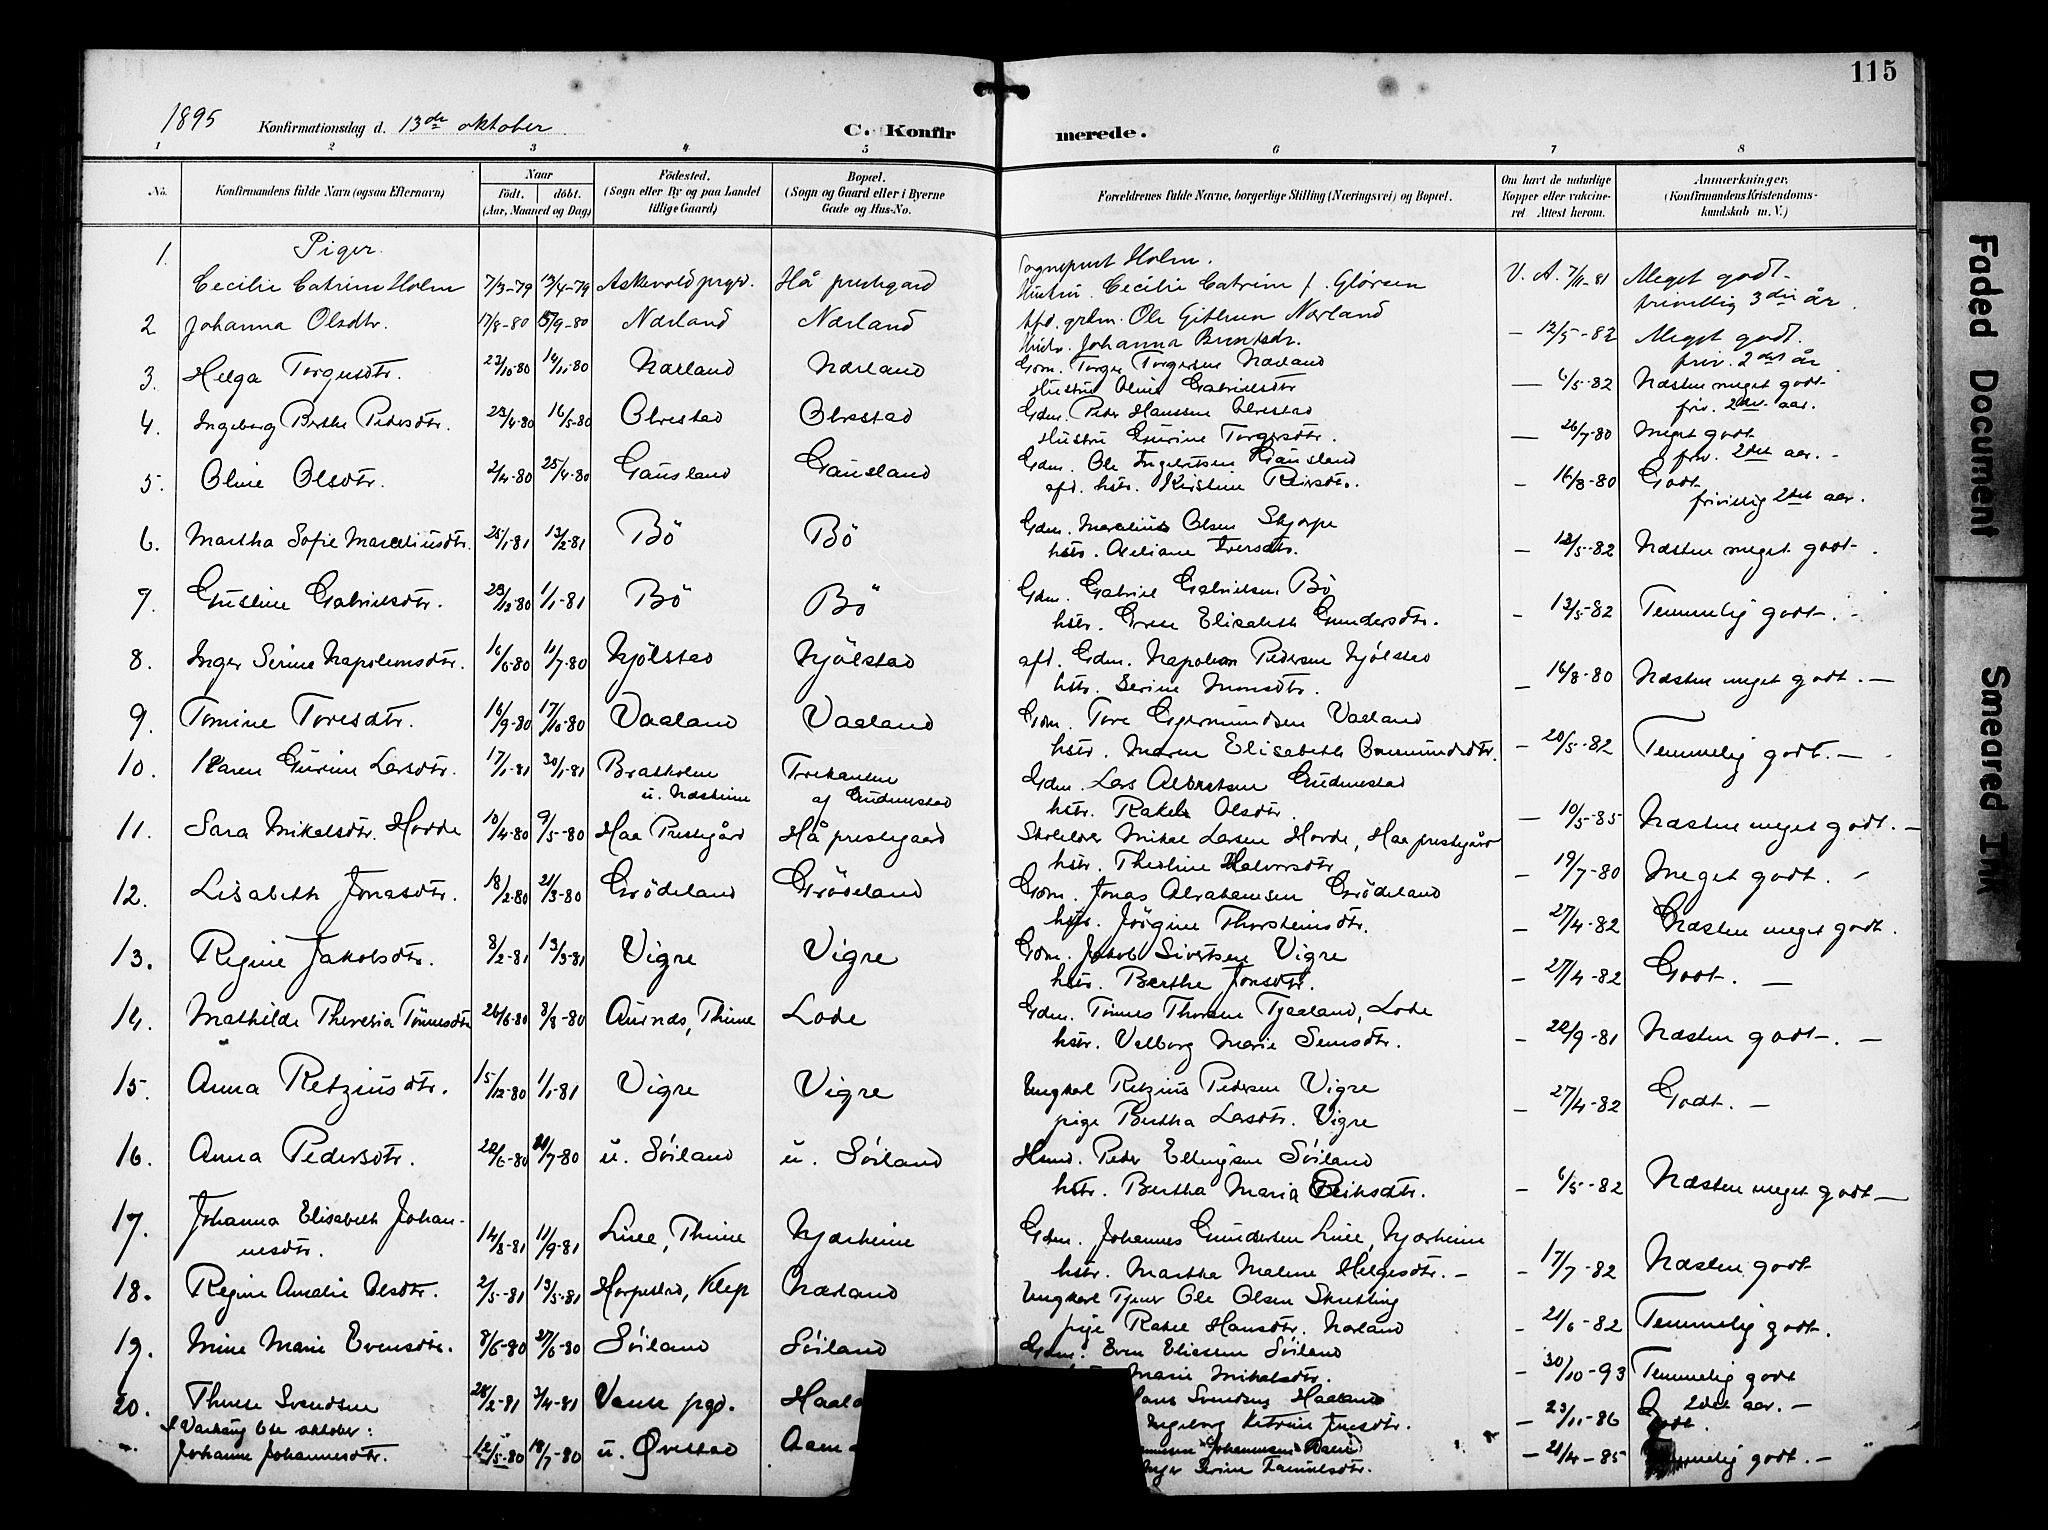 115
1895 Konfirmationsdag d. 13de oktober C. Konfir merede.
1 2 3 4 5 6 7 8
No. Konfirmandens fulde Navn (ogsaa Efternavn) Naar Født. døbt. (Aar, Maaned og Dag) Fødested. (Sogn eller By og paa Landet tillige Gaard) Bopæl. (Sogn og Gaard eller i Byerne Gade og Hus-No. Forældrenes fulde Navne, borgerlige Stilling (Næringsvei) og Bopæl. Om havt de naturlige Kopper eller vakcineret Attest herom. Anmærkninger, (Konfirmandens Kristendomskundskab m. V.)
Piger.
1. Cecilie Catrine Holm 7/3-79 13/4-79 Askevold prgd. Hå prestegard Sogneprest Holm. Hustru Cecilie Catrine f. Glørsen V. A. 7/11-81 Meget godt frivillig 3die år.
2 Johanna Olsdtr. 17/8-80 5/9-80 Nærland Nærland Ole Gitlesen Nærland Johanna - 12/5-82 Meget godt. friv. 2det år
3. Helga Torgersdtr. 23/10-80 14/11-80 Nærland Nærland Gdm. Torger Torgersen Nærland Hustru Oline Gabrielsdtr - 6/5-82 Næsten meget godt friv. 2det aar.
4. Ingeborg Berthe Pedersdtr. 23/4-80 16/5-80 Obrestad Obrestad Gdm. Peder Hanssen Obrestad Hustru Gurine Torgersdtr. - 26/7-80 Meget godt friv. 2det aar. -
5. Oline Olsdtr. 2/4-80 25/4-80 Gausland Gausland Gdm. Ole Ingebretsen Gausland afd. hstr. Kirstine - 16/8-80 Godt frivillig 2det aar.
6. Martha Sofie Marseliusdtr. 25/1-81 13/2-81 Bö Bö Gdm. Marselius Olsen Skjorpe hstr. Iversdtr. - 13/5-82 Næsten meget godt-.
7. Gustine Gabrielsdtr. 23/12-80 1/1-81 Bö Bö Gdm. Gabriel Gabrielsen Bö hstr. Grete Elisabeth Gundersdtr. - 13/5-82 Temmelig godt.
8. Inger Serine Napoleonsdtr. 16/6-80 11/7-80 Njölstad Njölstad afd. Gdm. Napoleon Pedersen Njölstad hstr. Serine Monsdtr. - 16/8-80 Næsten meget godt. -
9. Tomine Toresdtr. 16/9-80 17/10-80 Vaaland Vaaland Gdm. Tore Gjermundsen Vaaland hstr. Maren Elisabeth - 20/5-82 Temmelig godt. -
10. Karen Gurine Larsdtr. 17/1-81 30/1-81 Bratholm u. Næsheim Trekanten af Gudmestad Gdm. Lars Albretsen Gudmestad hstr. Rakel Olsdtr. - 10/5-85 Næsten meget godt. -
11. Sara Mikalsdtr. Hodde 10/4-80 9/5-80 Haa Prestegård Hå prestegaard Mikal Larsen Hodde, Haa prestegård hstr. Theoline Halvorsdtr - 19/7-80 Meget godt. -
12. Lisabeth Jonasdtr. 18/2-80 21/3-80 Grödeland Grödeland Gdm. Jonas Abrahamsen Grödeland hstr. Jörgine Thorsteinsdtr. - 27/4-82 Næsten meget godt.
13. Regine Jakobsdtr. 8/2-81 13/3-81 Vigre Vigre Gdm. Jakob Sivertsen Vigre hstr. Berthe Jonsdtr. - 27/4-82 Godt. -
14. Mathilde Theresia Tönnesdtr 26/6-80 8/8-80 Aurnds, Thime Lode Gdm. Tönnes Thorsen Tjaaland, Lode hstr. Valborg Marie - 22/9-81 Næsten godt. -
15. Anna Retziusdtr. 15/12-80 1/1-81 Vigre Vigre Ungkarl Retzius Pedersen Vigre pige Bertha Larsdtr. Vigre - 27/4-82 Godt. -
16. Anna Pedersdtr. 22/6-80 21/7-80 u. Söiland u. Söiland Hsmd. Peder Ellingsen Söiland hstr. Bertha Maria Eriksdtr. - 6/5-82 Næsten meget godt -
17. Johanna Elisabeth Johannesdtr. 14/8-81 11/9-81 Linee, Thime Njærheim Gdm. Johannes Gundersen Linee, Njærheim hstr. Martha Malene Helgesdtr. - - 17/7-82 Næsten godt
18. Regine Amalie Olsdtr. 2/5-81 13/5-81 Horpestad, Klep Nærland Ungkarl Tjener Ole Olsen Skretting pige Rakel Hansdtr. Nærland - 21/6-82 Temmelig godt.
19. Mine Marie Evensdtr. 8/6-80 27/6-80 Söiland Söiland Gdm. Even Eliassen Söiland Marie Mikalsdtr. - 30/10-93 Temmelig godt 2det aar. -
20. Therese Svendsen 28/2-81 3/4-81 Vanse pgd. Haala Hans Svendsen Haaland Ingeborg Katrine - 23/11-86 Godt.
I Varhaug 6te oktober:
Johanne Johannesdtr. 12/5-80 18/7-80 u. Ørestad Johannesen Inger Serine - 21/4-85 Temmelig godt. -
Faded Document
Smeared Ink